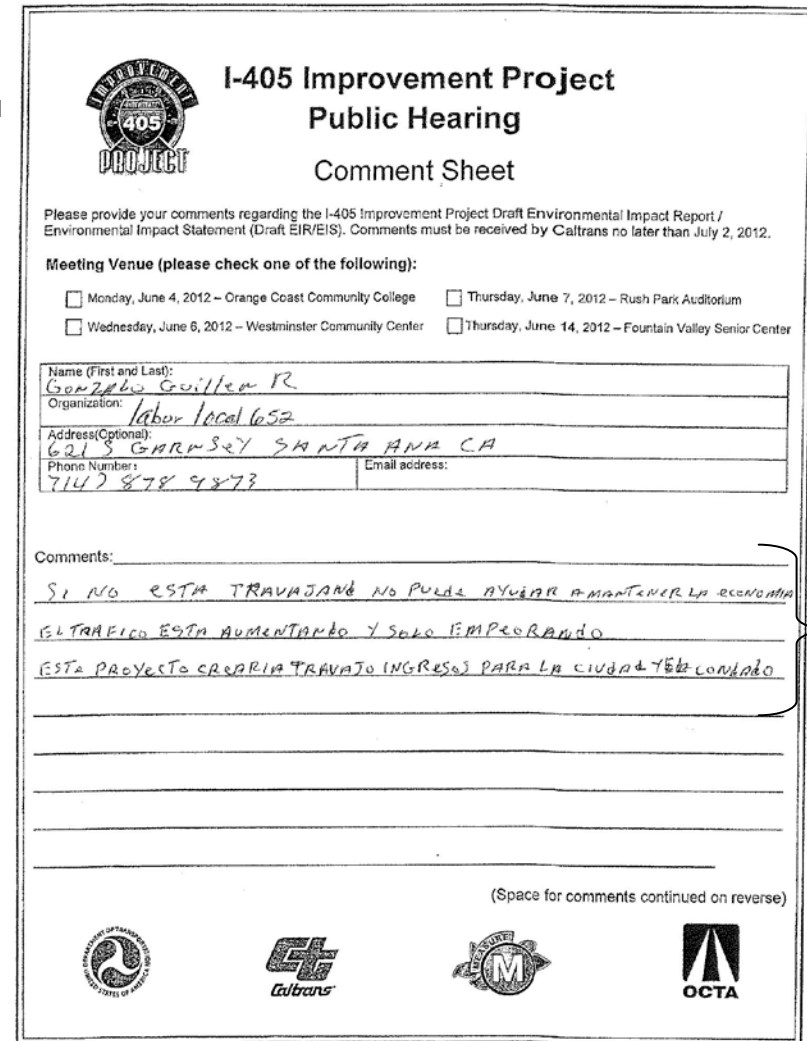 IMPROVEMENT
405
PROJECT
I-405 Improvement Project
Public Hearing
Comment Sheet
Please provide your comments regarding the I-405 Improvement Project Draft Environmental Impact Report /
Environmental Impact Statement (Draft EIR/EIS). Comments must be received by Caltrans no later than July 2, 2012.
Meeting Venue (please check one of the following):
Monday, June 4, 2012 – Orange Coast Community College
Thursday, June 7, 2012 – Rush Park Auditorium
Wednesday, June 6, 2012 – Westminster Community Center
Thursday, June 14, 2012 – Fountain Valley Senior Center
Name (First and Last):
GONZALO Guillen R
Organization: labor local 652
Address(Optional):
621 S GARNSEY SANTA ANA CA
Phone Number:
Email address:
714) 878 9873
Comments:
SI NO ESTA TRAVAJANd NO PUEdE AYUdAR A MANTENER LA ECONOMIA
EL TRAFICO ESTA AUMENTANdO Y SOLO EMPEORANdO
ESTE PROYECTO CREARIA TRAVAJO INGRESOS PARA LA CIUdAd Y EL CONdAdO
(Space for comments continued on reverse)
DEPARTMENT OF TRANSPORTATION
UNITED STATES OF AMERICA
Caltrans
MEASURE
M
OCTA